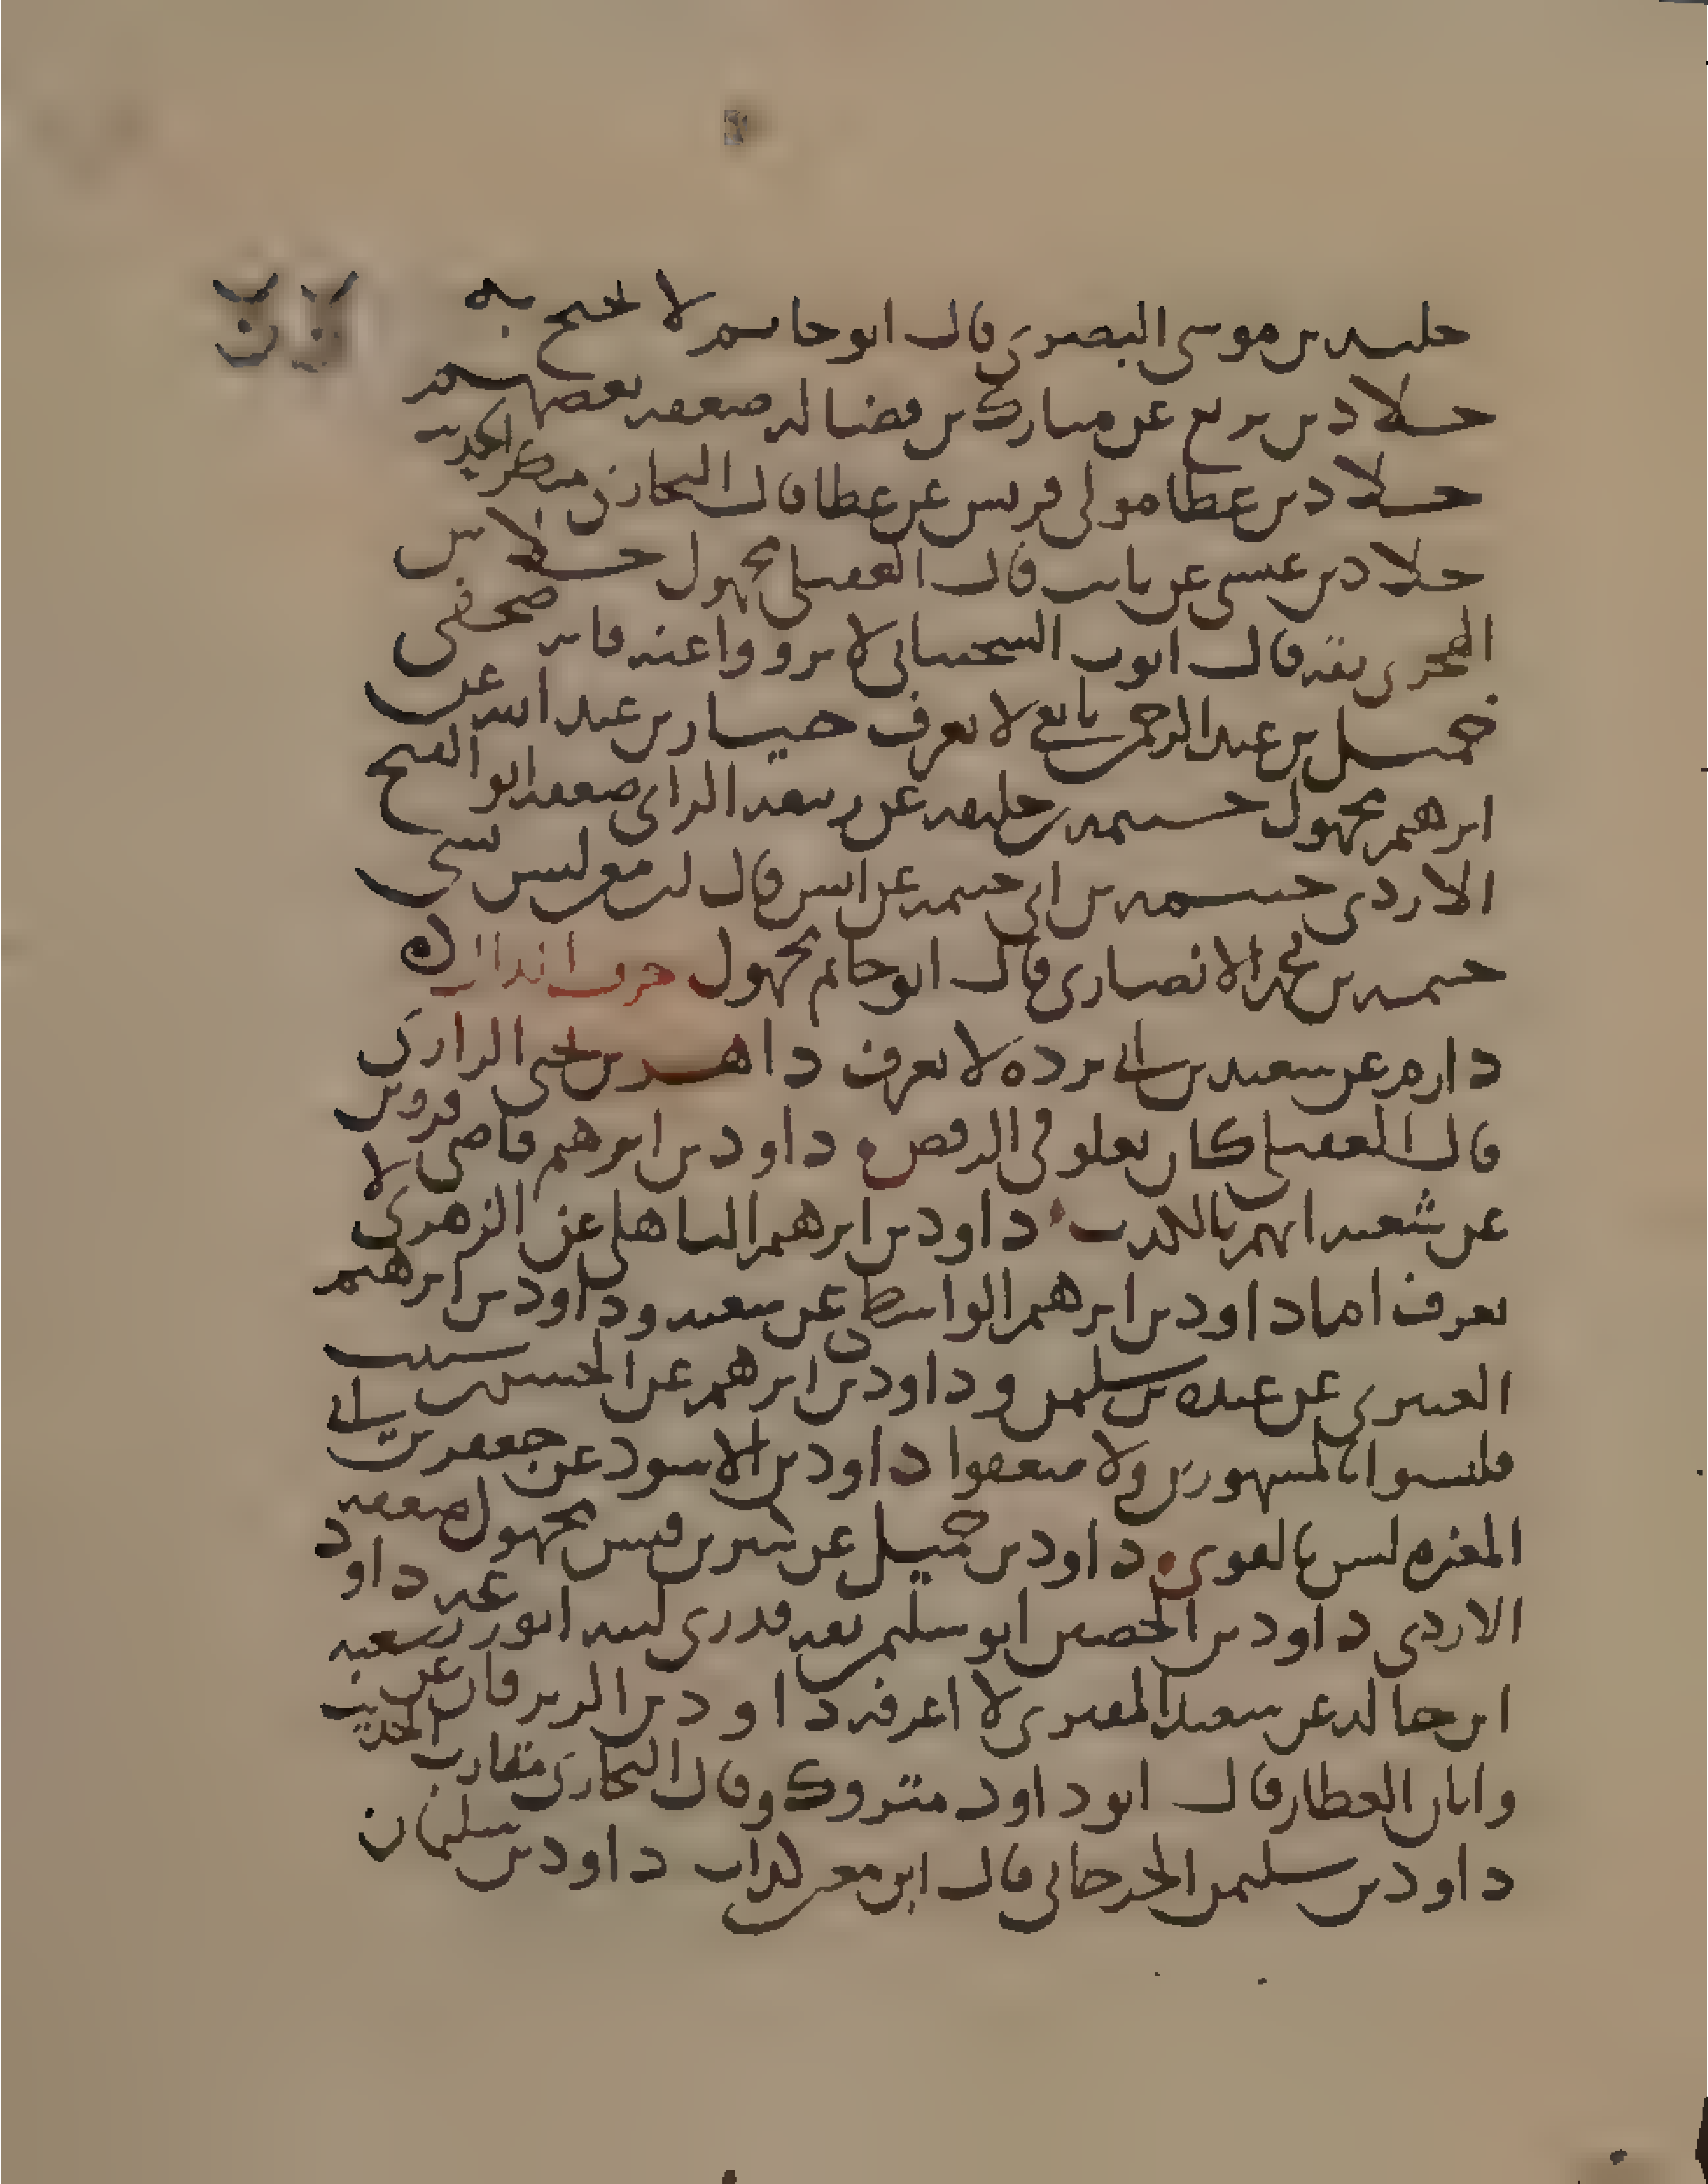 خليد بن موسى البصري قال ابو حاتم لا يحتج به
خلاد بن بزيع عن مبارك بن فضاله ضعفه بعضهم
خلاد بن عطا مولى قريش عن عطا قال البخاري منكر الحديث
خلاد بن عيسى عن ثابت قال العقيلي مجهول خلاس
الهجري ثقه قال ايوب السختياني لا ترووا عنه فانه صحفي
خميل بن عبد الرحمن تابعي لا يعرف خيار بن عبد الله عن
ابرهيم مجهول خيثمه بن خليفه عن ربيعه الراي ضعفه ابو الفتح
الازدي خيثمه بن ابي خيثمه عن انس قال ابن معين ليس بشي
خيثمه بن محمد الانصاري قال ابو حاتم مجهول حرف الدال
دارم عن سعيد بن ابي برده لا يعرف داهر بن يحيى الرازي
قال العقيلي كان يغلو في الرفض داود بن ابرهيم قاضي قزوين
عن شعبه اتهم بالكذب داود بن ابرهيم الباهلي عن الزهري لا
يعرف اما داود بن ابرهيم الواسطي عن شعبه وداود بن ابرهيم
عن عبده بن سليمن وداود بن ابرهيم عن الحسن بن شبيب
فليسوا بالمشهورين ولا ضعفوا داود بن الاسود عن جعفر بن ابي
المغيره ليس بالقوي داود بن جميل عن كثير بن قيس مجهول ضعفه
الازدي داود بن الحصين ابو سليمن ثقه قدري لينه ابو زرعه داود
ابن خالد عن سعيد المقبري لا اعرفه داود بن الزبرقان عن شعبه
وابان العطار قال ابو داود متروك وقال البخاري مقارب الحديث
داود بن سليمن الجرجاني قال ابن معين كذاب داود بن سليمان